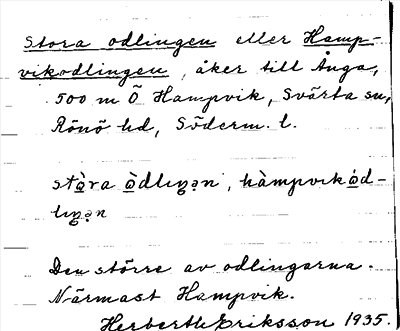 Stora odlingen eller Hamp-
vikodlingen, åker till Ånga,
500 m Ö Hampvik, Svärta sn,
Rönö hd, Söderm. l.
stὰra ὰdlιŋan, hàmpvιkάd-
lιŋan
Den större av odlingarna.
Närmast Hampvik.
Herbert Eriksson 1935.